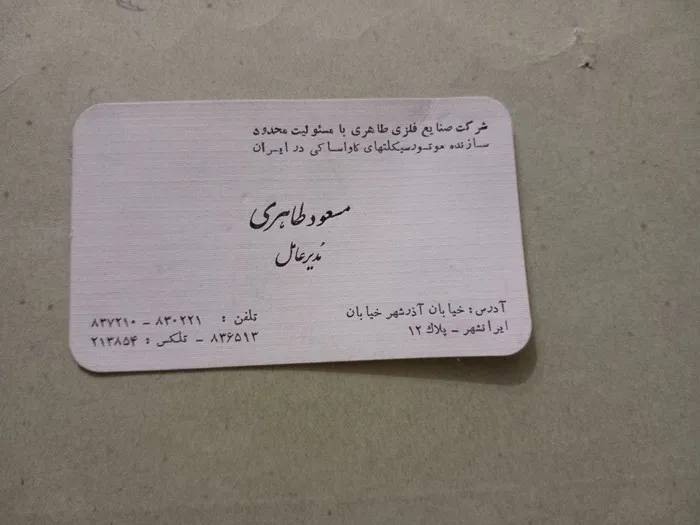 شرکت صنایع فلزی طاهری با مسئولیت محدود
سازنده موتورسیکلتهای کاواساکی در ایران
مسعود طاهری
مدیرعامل
آدرس: خیابان آذرشهر خیابان
ایرانشهر - پلاک ۱۲
تلفن: ۸۳۰۲۲۱ - ۸۳۷۲۱۰
۸۳۶۵۱۳ - تلکس: ۲۱۳۸۵۴